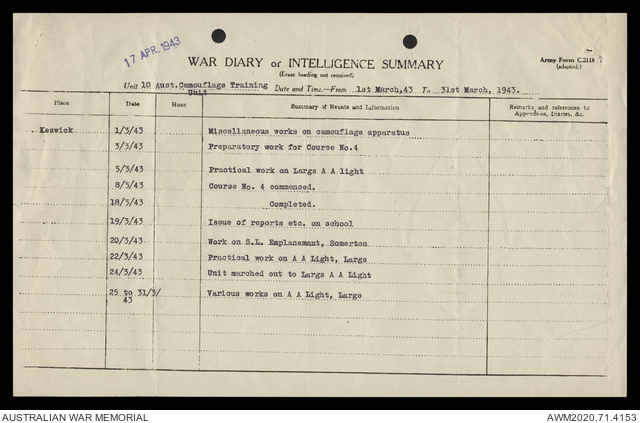 17 APR. 1943
WAR DIARY or INTELLIGENCE SUMMARY
(Erase heading not required)
Army Form C.2118
(adapted.)
Unit 10 Aust.Camouflage Training Unit Date and Time.—From 1st March,43 To 31st March, 1943.
Place Date Hour Summary of Events and Information Remarks and references to Appendices, Diaries, &c.
Keswick 1/3/43 Miscellaneous works on camouflage apparatus
3/3/43 Preparatory work for Course No.4
5/3/43 Practical work on Largs A A light
8/3/43 Course No. 4 commenced.
18/3/43 Completed.
19/3/43 Issue of reports etc. on school
20/3/43 Work on S.L. Emplacement, Somerton
22/3/43 Practical work on A A Light, Largs
24/3/43 Unit marched out to Largs A A Light
25 to 31/3/43 Various works on A A Light, Largs
AUSTRALIAN WAR MEMORIAL
AWM2020.71.4153